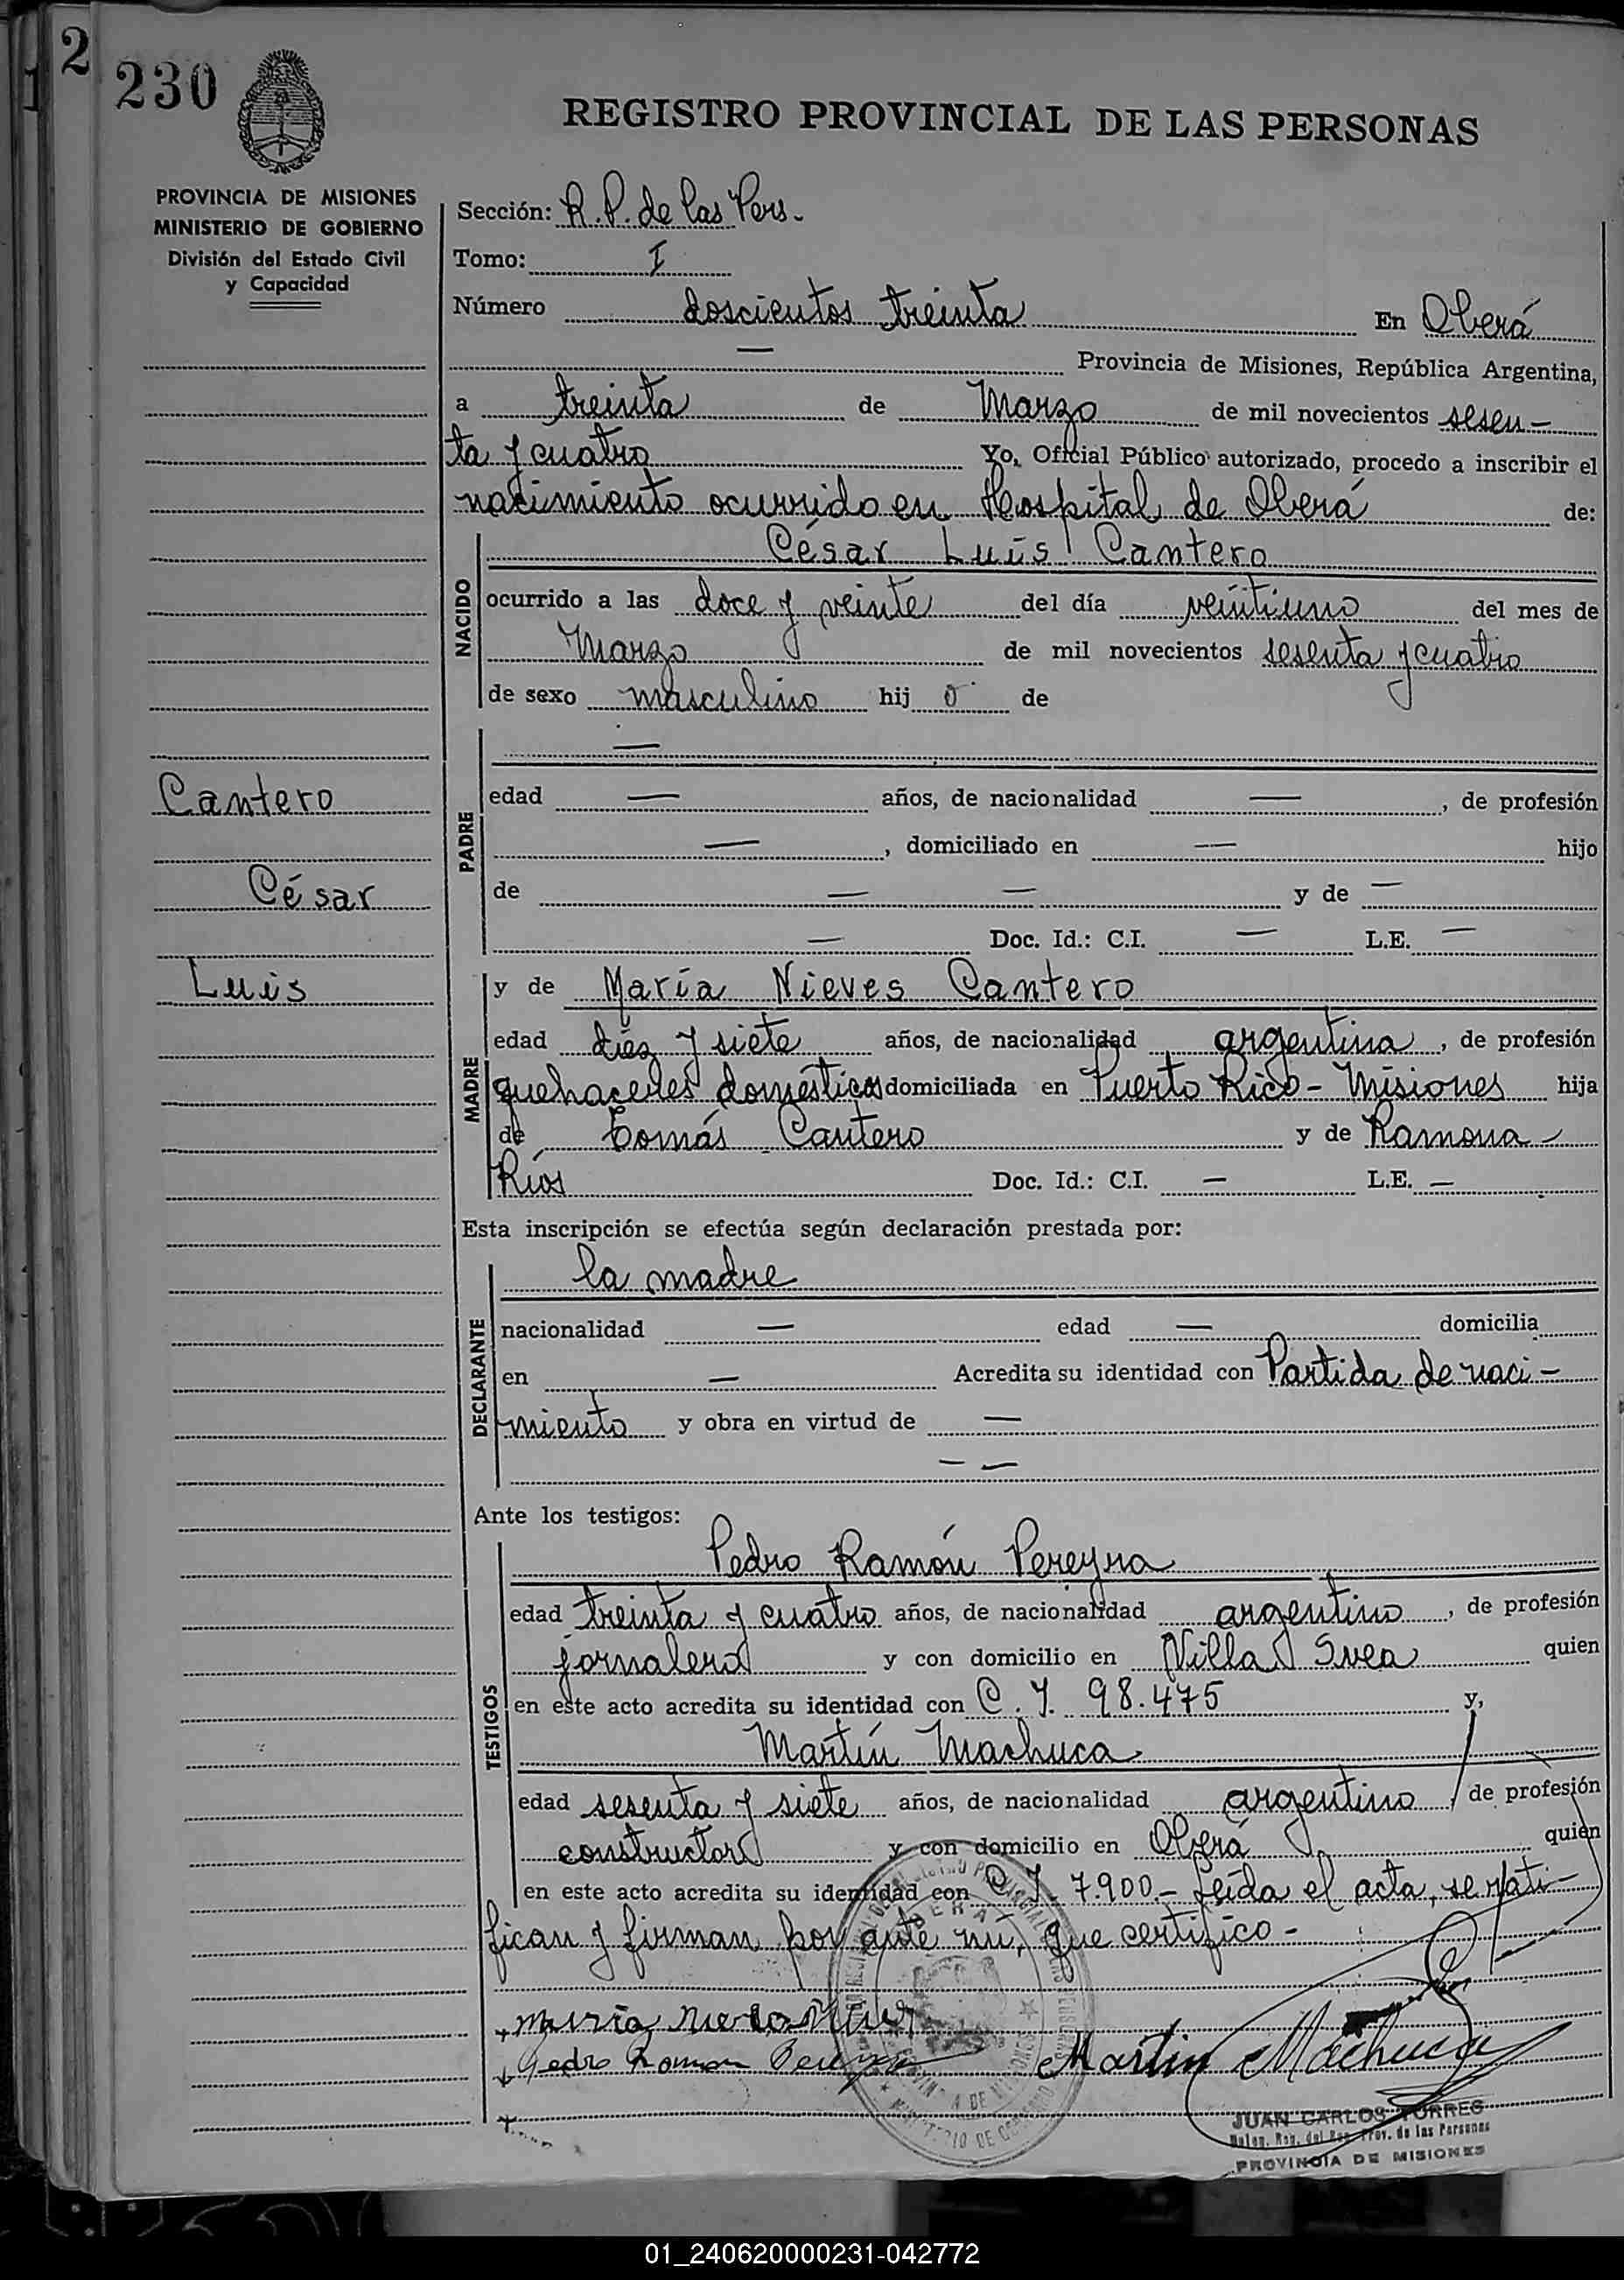 2
230
REGISTRO PROVINCIAL DE LAS PERSONAS
PROVINCIA DE MISIONES
MINISTERIO DE GOBIERNO
División del Estado Civil
y Capacidad
Sección: R.P. de las Pers.
Tomo: I
Número doscientos treinta En Oberá
— Provincia de Misiones, República Argentina,
a treinta de Marzo de mil novecientos sesen-
ta y cuatro Yo, Oficial Público autorizado, procedo a inscribir el
nacimiento ocurrido en Hospital de Oberá de:
NACIDO
César Luis Cantero
ocurrido a las doce y veinte del día veintiuno del mes de
Marzo de mil novecientos sesenta y cuatro
de sexo masculino hijo de
PADRE
—
edad — años, de nacionalidad —, de profesión
—, domiciliado en — hijo
de — — y de —
— Doc. Id.: C.I. — L.E. —
Cantero
César
Luis
MADRE
y de María Nieves Cantero
edad diez y siete años, de nacionalidad argentina, de profesión
quehaceres domésticos domiciliada en Puerto Rico - Misiones hija
de Tomás Cantero y de Ramona
Ríos Doc. Id.: C.I. — L.E. —
Esta inscripción se efectúa según declaración prestada por:
DECLARANTE
la madre
nacionalidad — edad — domicilia
en — Acredita su identidad con Partida de naci-
miento y obra en virtud de —
— —
Ante los testigos:
TESTIGOS
Pedro Ramón Pereyra
edad treinta y cuatro años, de nacionalidad argentino, de profesión
jornalero y con domicilio en Villa Svea quien
en este acto acredita su identidad con C.I. 98.475 y,
Martín Machuca
edad sesenta y siete años, de nacionalidad argentino, de profesión
constructor y con domicilio en Oberá quien
en este acto acredita su identidad con C.I. 7.900.- Leída el acta, se rati-
fican y firman por ante mí, que certifico -
María
Pedro Ramon Pereyra Martin Machuca
JUAN CARLOS TORRES
Deleg. Reg. del Reg. Prov. de las Personas
PROVINCIA DE MISIONES
01_240620000231-042772